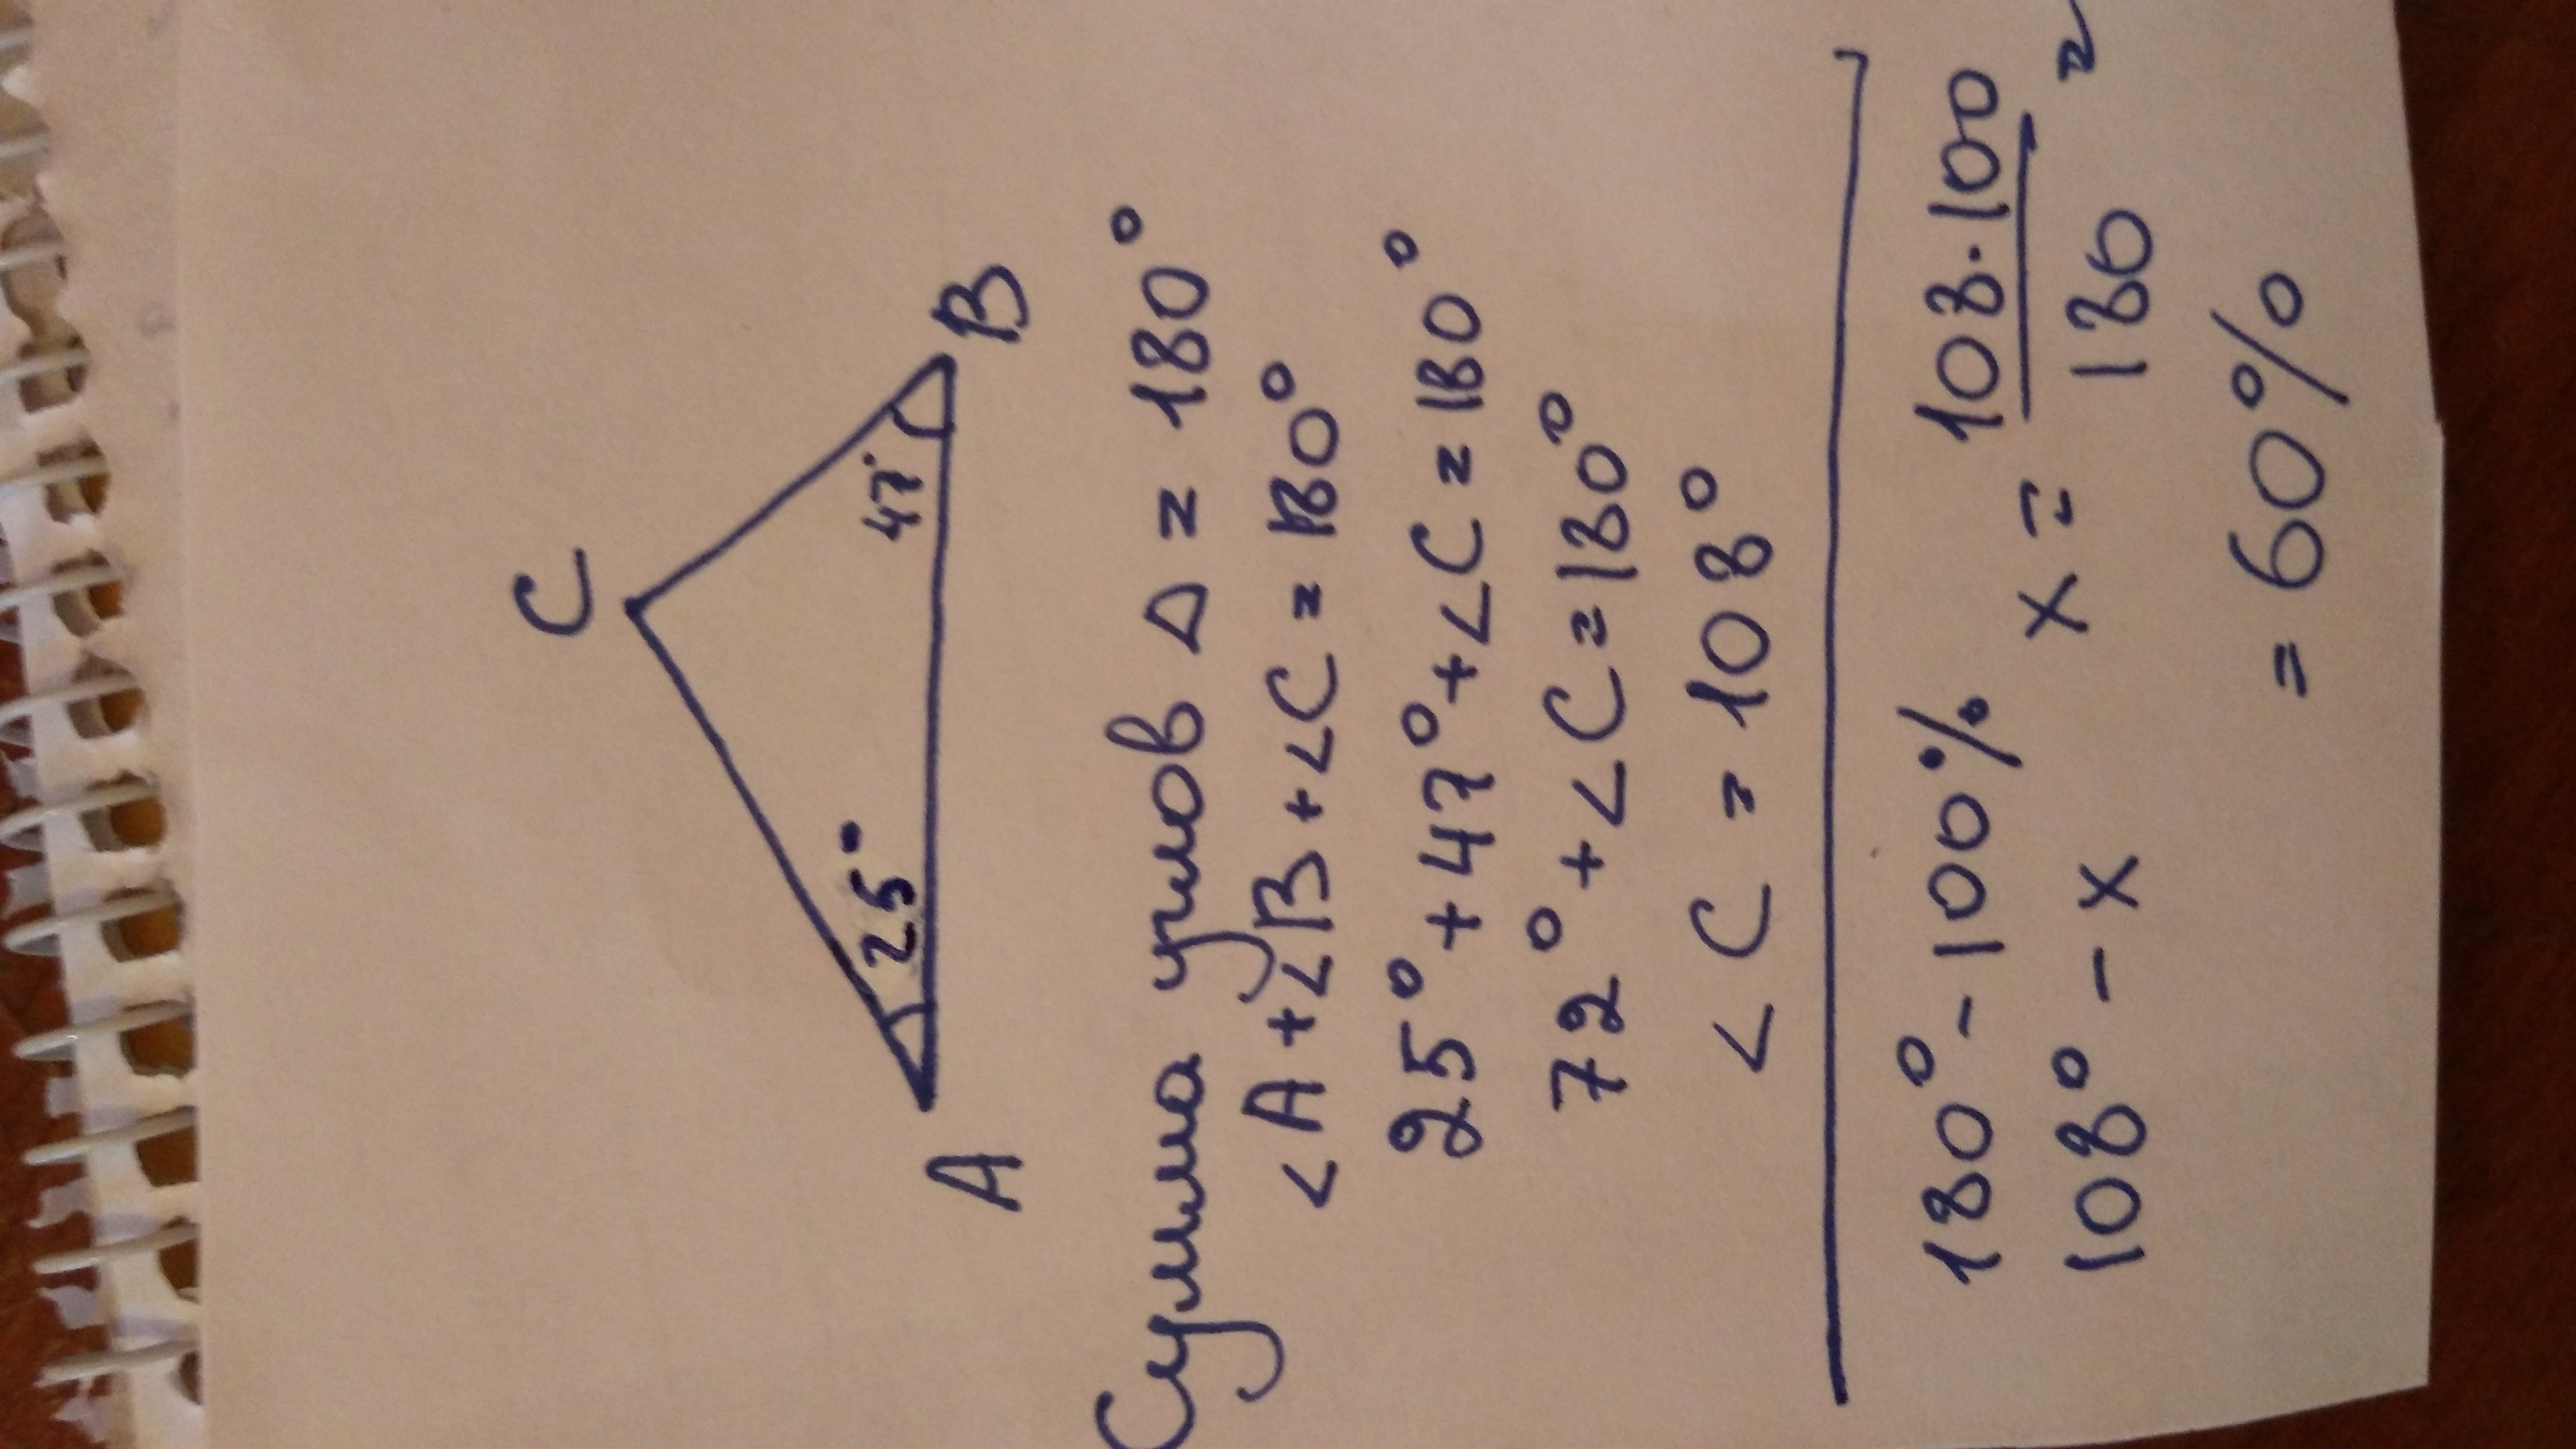 C
25°
47°
A
B
Сумма углов △ = 180°
<A+<B+<C=180°
25°+47°+<C=180°
72°+<C=180°
<C=108°
180°-100%
108°-x
x = 108·100 / 180 =
= 60%